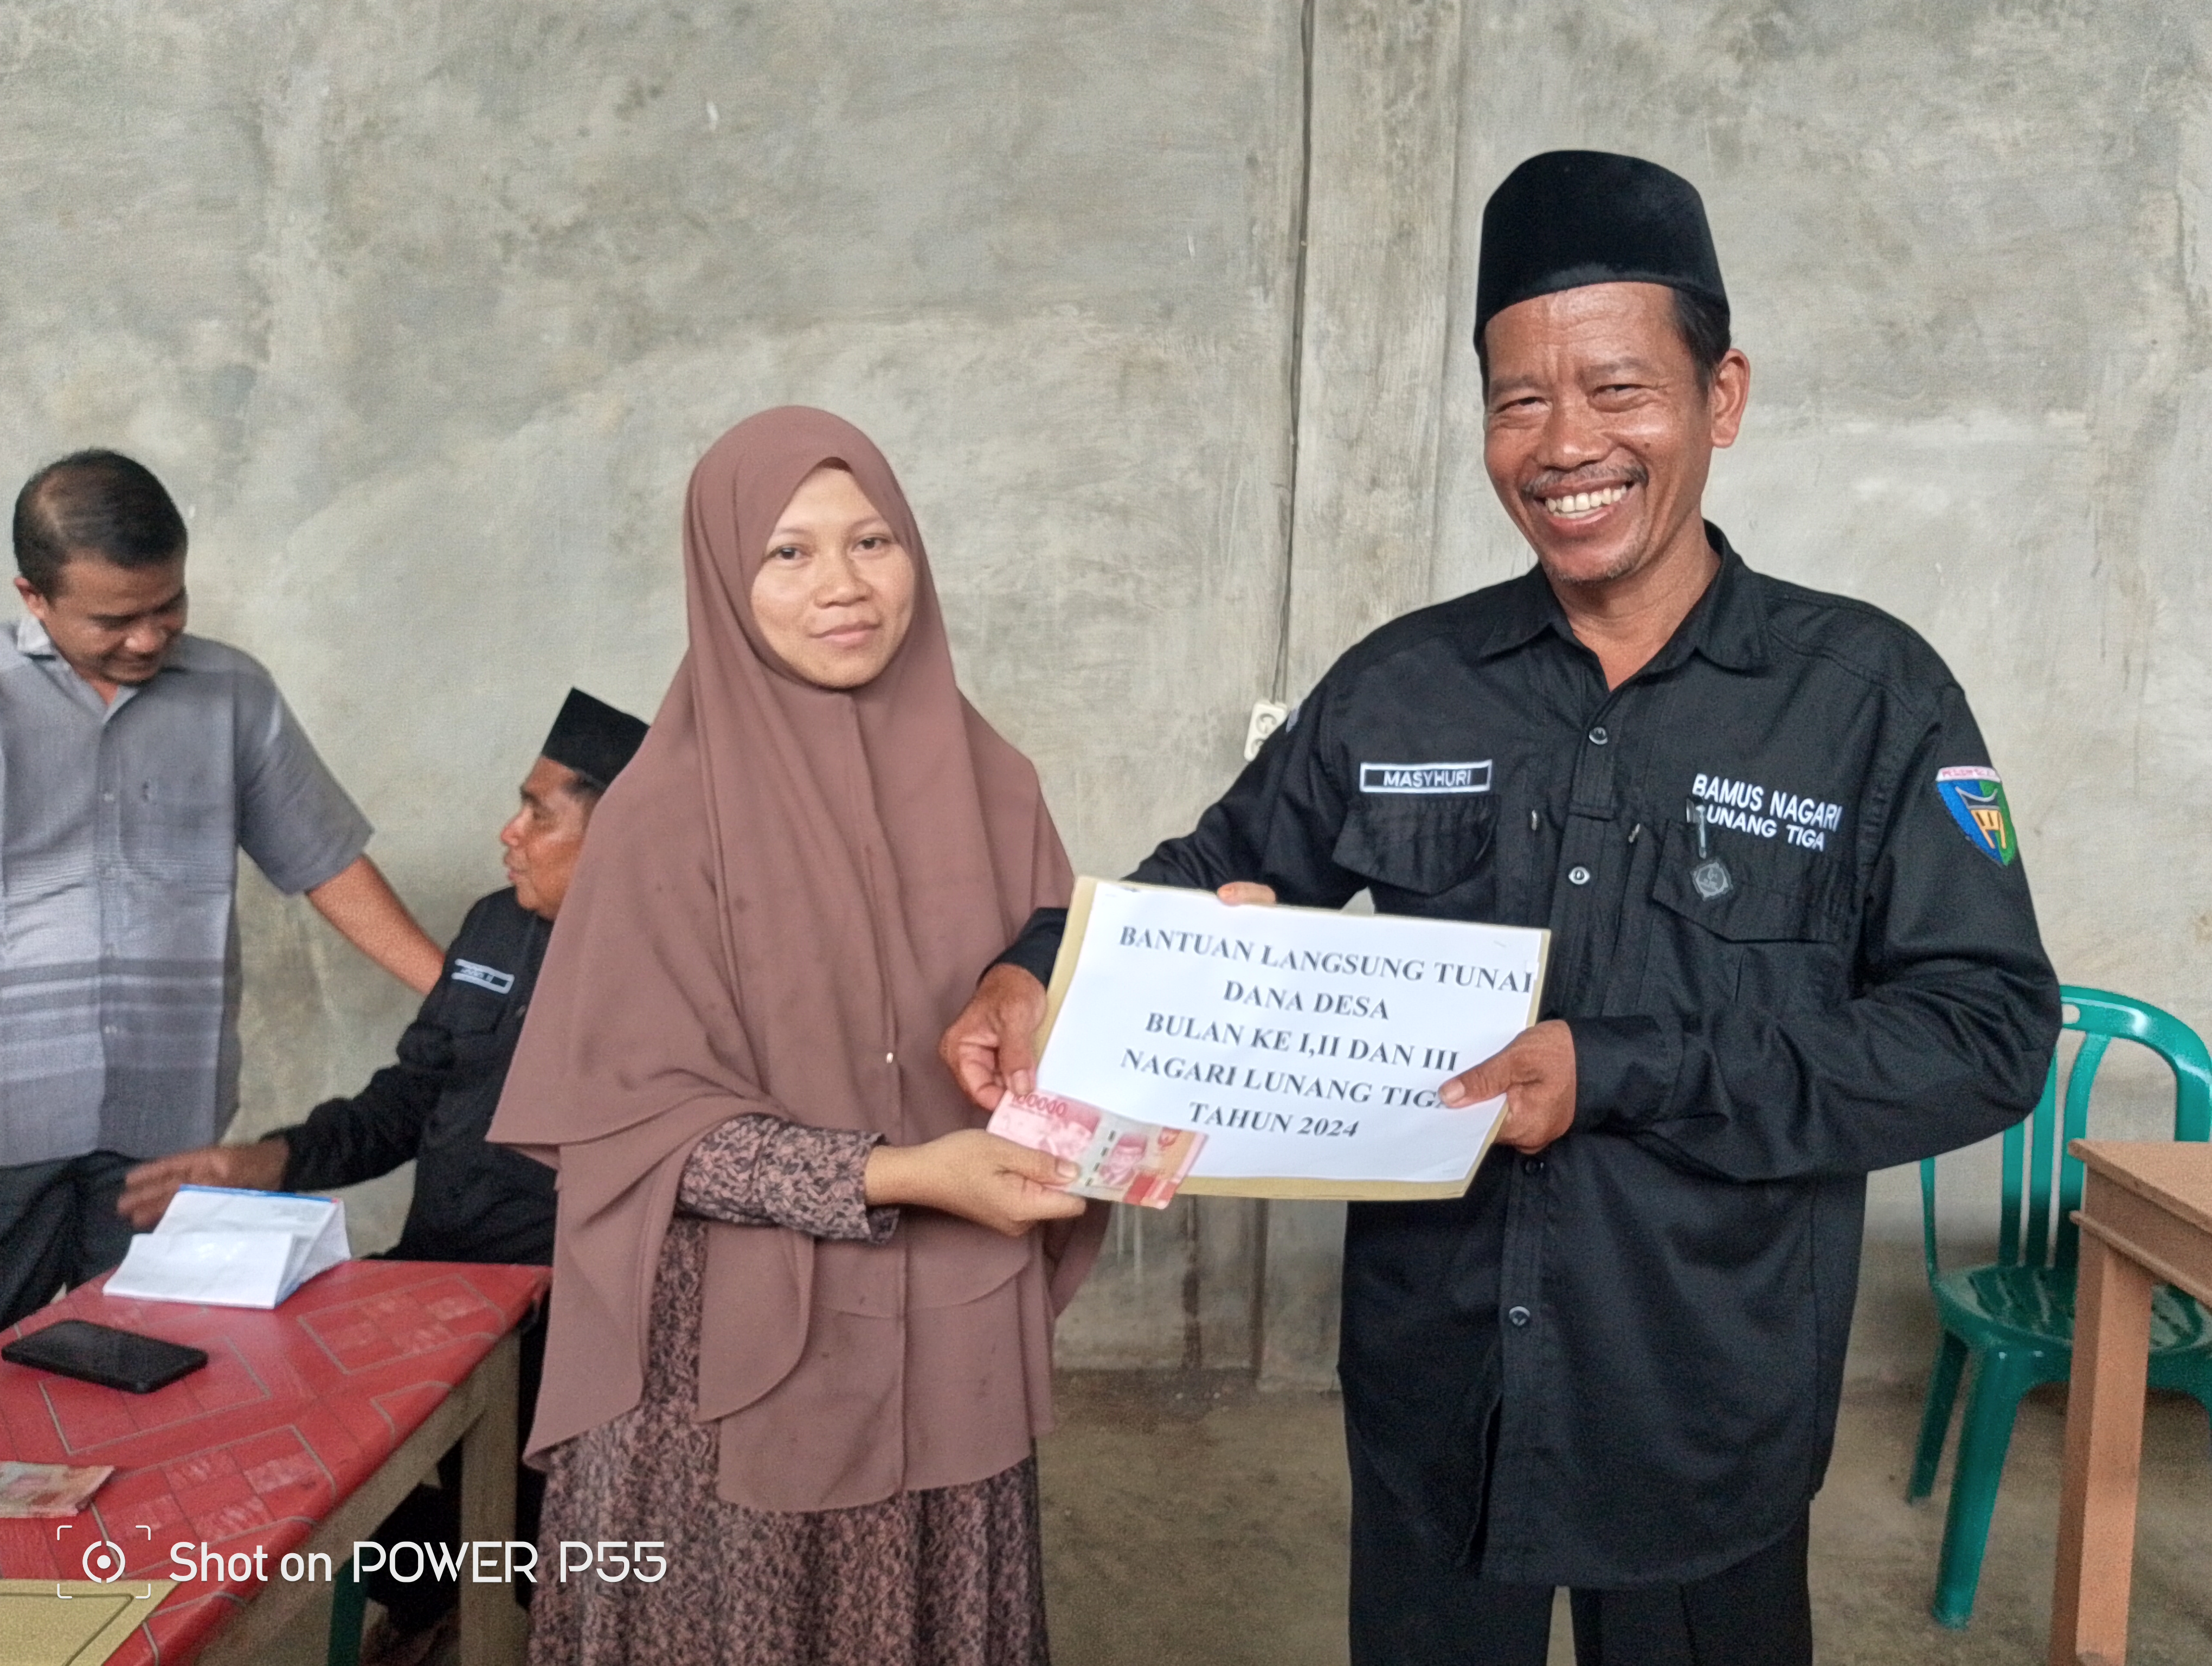 MASYHURI
BAMUS NAGARI
LUNANG TIGA
BANTUAN LANGSUNG TUNAI
DANA DESA
BULAN KE I,II DAN III
NAGARI LUNANG TIGA
TAHUN 2024
100000
Shot on POWER P55